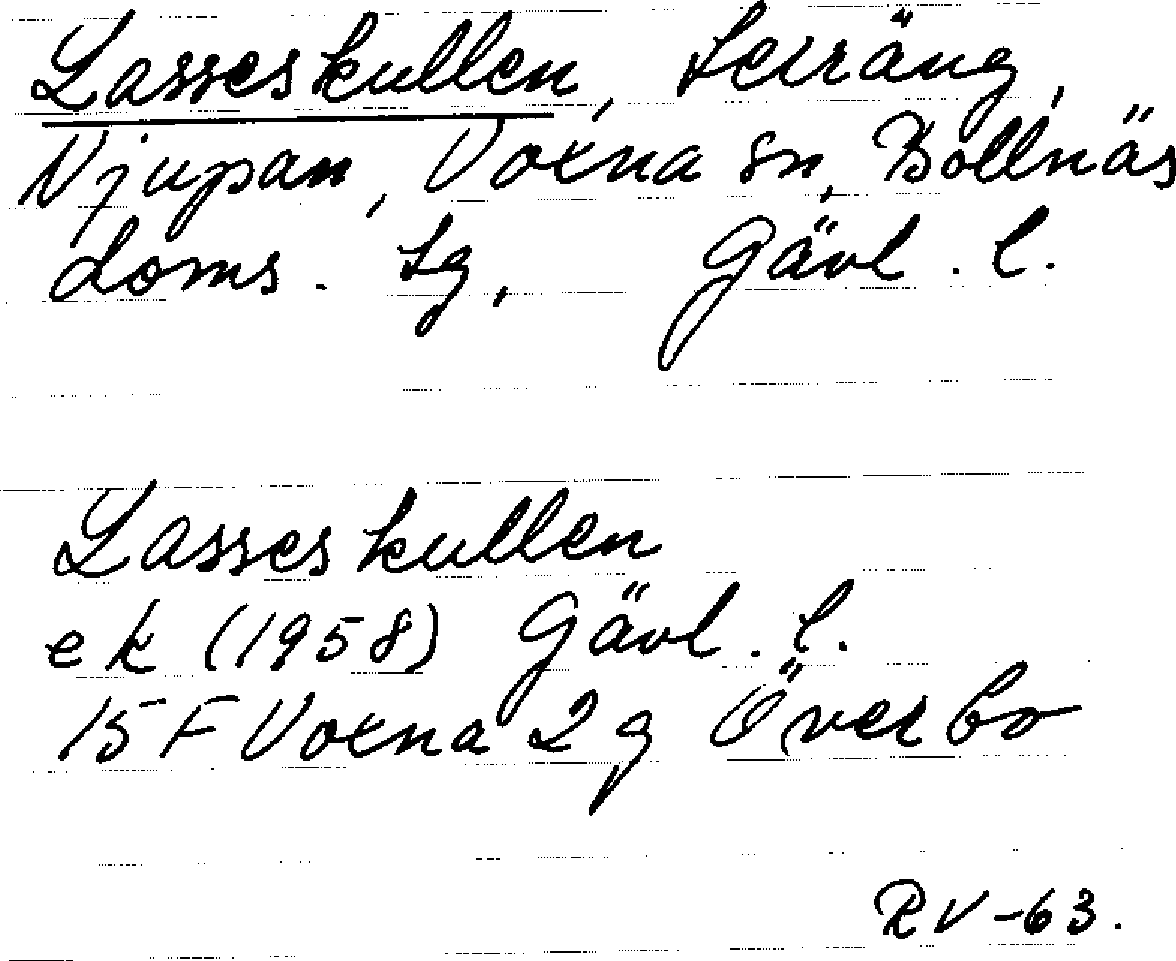 Lasseskullen, terräng,
Njupan, Voxna sn, Bollnäs
doms. tg, Gävl. l.
Lasseskullen
ek (1958) Gävl. l.
15F Voxna 2g Överbo
RV-63.